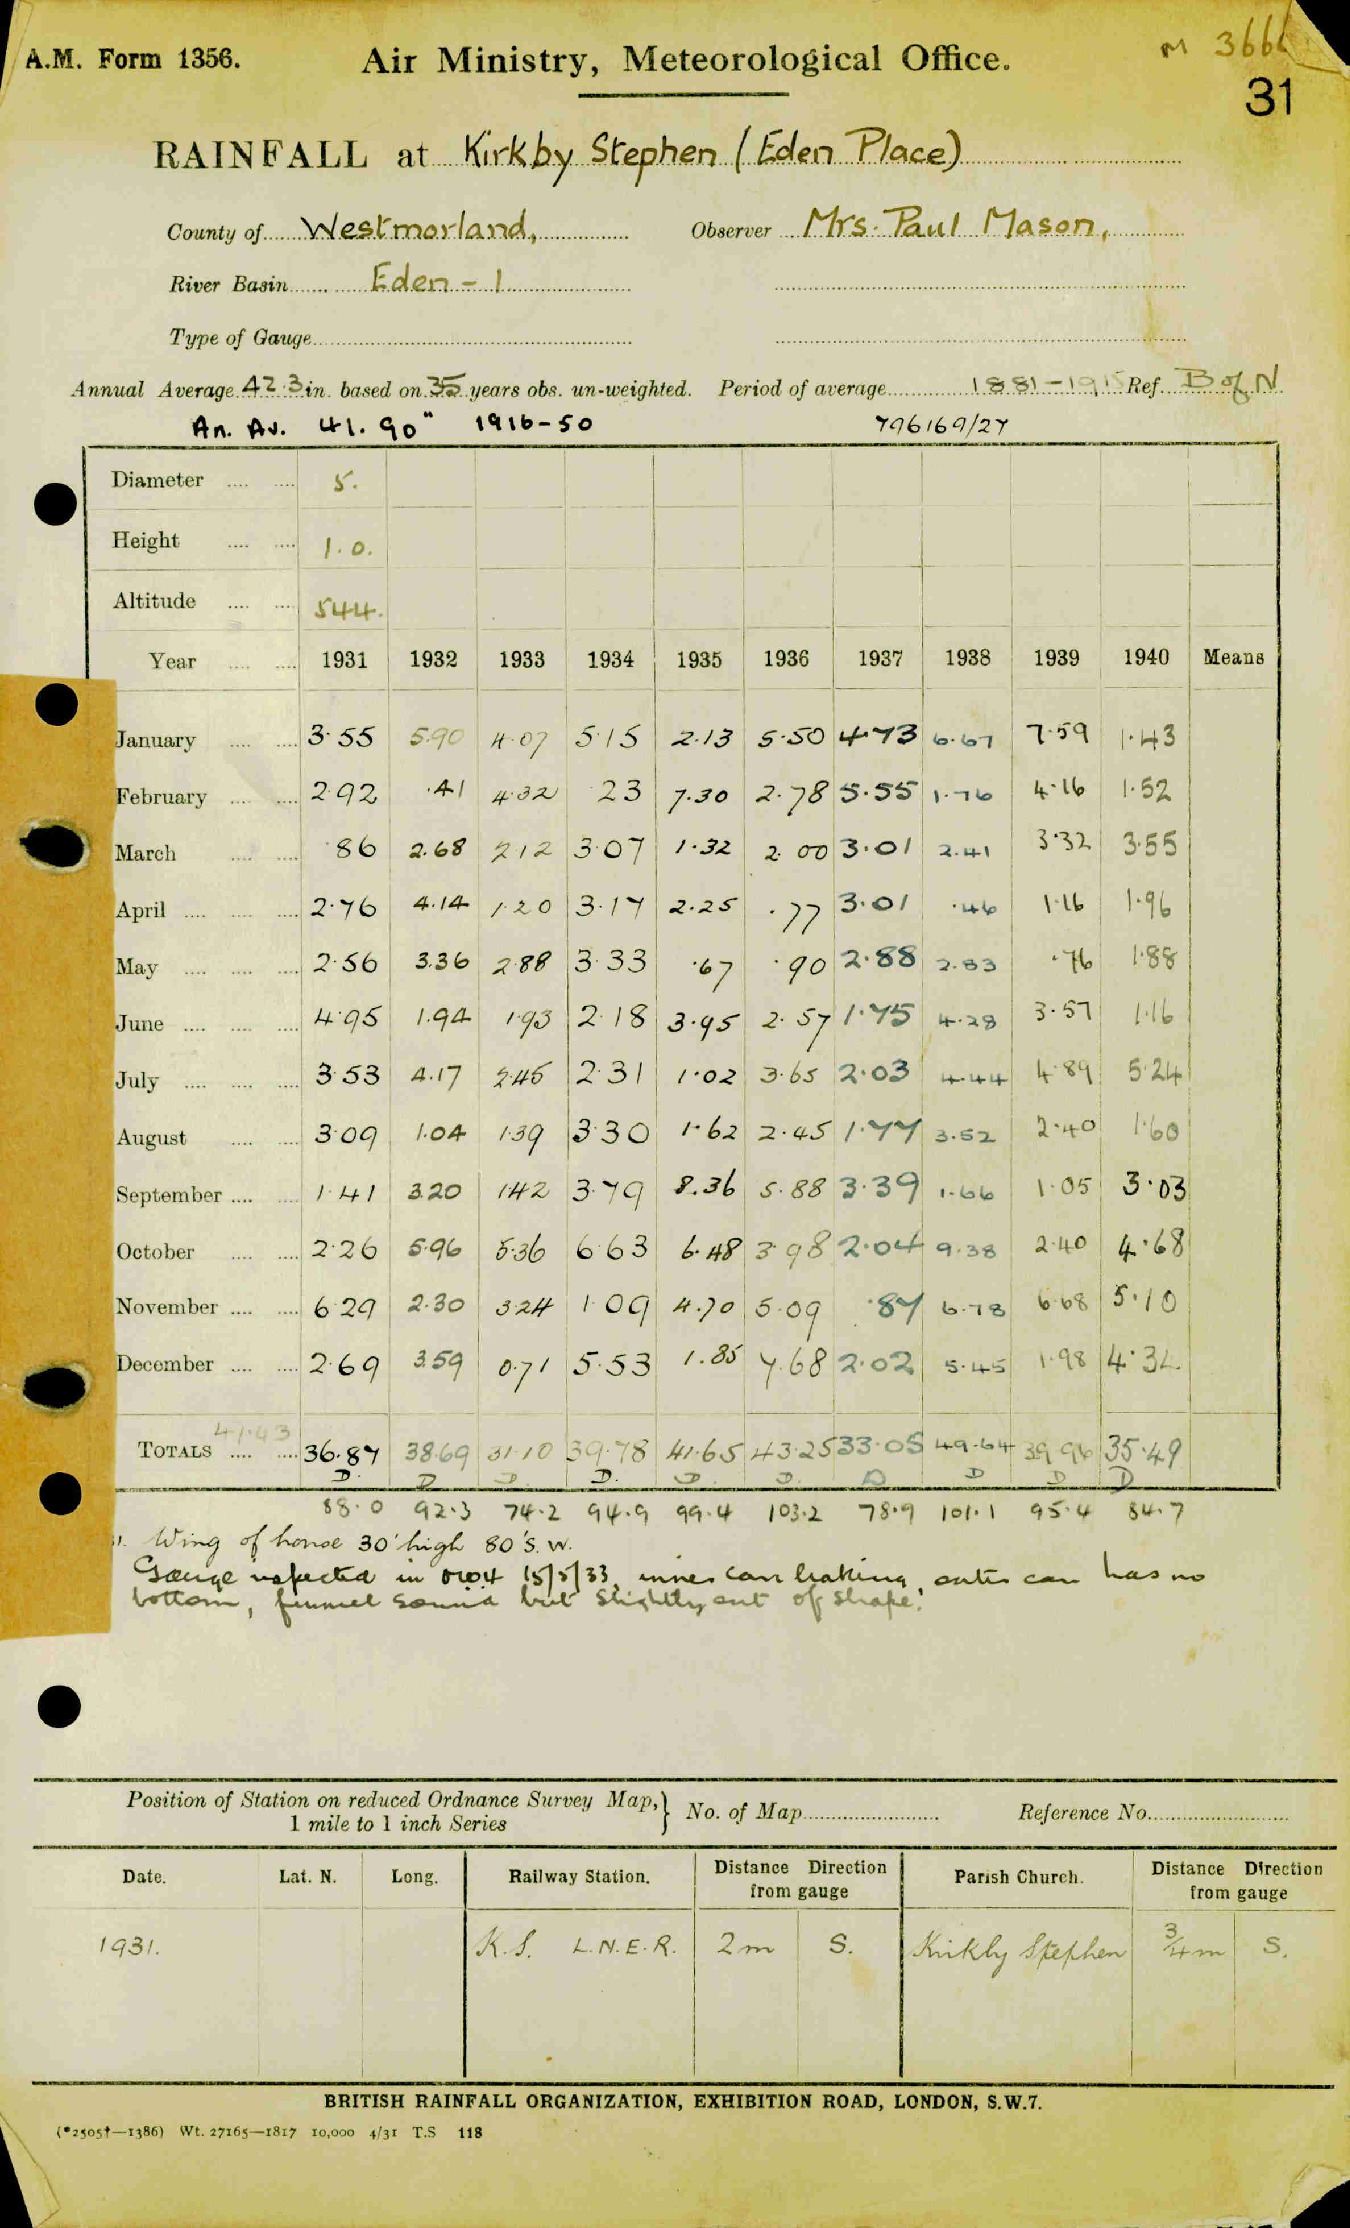 M 366
A.M. Form 1356. Air Ministry, Meteorological Office.
31
RAINFALL at Kirkby Stephen (Eden Place)
County of Westmorland, Observer Mrs. Paul Mason,
River Basin Eden - 1
Type of Gauge
Annual Average 42.3 in. based on 35 years obs. un-weighted. Period of average 1881-1915 Ref. B of N
An. Av. 41.90" 1916-50 796169/27
Diameter 5.
Height 1.0.
Altitude 544.
Year 1931 1932 1933 1934 1935 1936 1937 1938 1939 1940 Means
January 3.55 5.90 4.07 5.15 2.13 5.50 4.73 6.67 7.59 1.43
February 2.92 .41 4.32 .23 7.30 2.78 5.55 1.76 4.16 1.52
March .86 2.68 2.12 3.07 1.32 2.00 3.01 2.41 3.32 3.55
April 2.76 4.14 1.20 3.17 2.25 .77 3.01 .46 1.16 1.96
May 2.56 3.36 2.88 3.33 .67 .90 2.88 2.83 .76 1.88
June 4.95 1.94 1.93 2.18 3.95 2.57 1.75 4.28 3.57 1.16
July 3.53 4.17 2.45 2.31 1.02 3.65 2.03 4.44 4.89 5.24
August 3.09 1.04 1.39 3.30 1.62 2.45 1.77 3.52 2.40 1.60
September 1.41 3.20 1.42 3.79 8.36 5.88 3.39 1.66 1.05 3.03
October 2.26 5.96 5.36 6.63 6.48 3.98 2.04 9.38 2.40 4.68
November 6.29 2.30 3.24 1.09 4.70 5.09 .87 6.78 6.68 5.10
December 2.69 3.59 0.71 5.53 1.85 7.68 2.02 5.45 1.98 4.34
41.43
TOTALS 36.87 38.69 31.10 39.78 41.65 43.25 33.05 49.64 39.96 35.49
D. D D. D. D. D. D D D D
88.0 92.3 74.2 94.9 99.4 103.2 78.9 101.1 95.4 84.7
Wing of house 30' high 80' S.W.
Gauge inspected in 15/5/33, inner can leaking, outer can has no
bottom, funnel sound but slightly out of shape.
Position of Station on reduced Ordnance Survey Map,} No. of Map Reference No.
1 mile to 1 inch Series
Date. Lat. N. Long. Railway Station. Distance Direction from gauge Parish Church. Distance Direction from gauge
1931. K.S. L.N.E.R. 2 m S. Kirkby Stephen 3/4 m S.
BRITISH RAINFALL ORGANIZATION, EXHIBITION ROAD, LONDON, S.W.7.
(*2505†—1386) Wt. 27165—1817 10,000 4/31 T.S 118